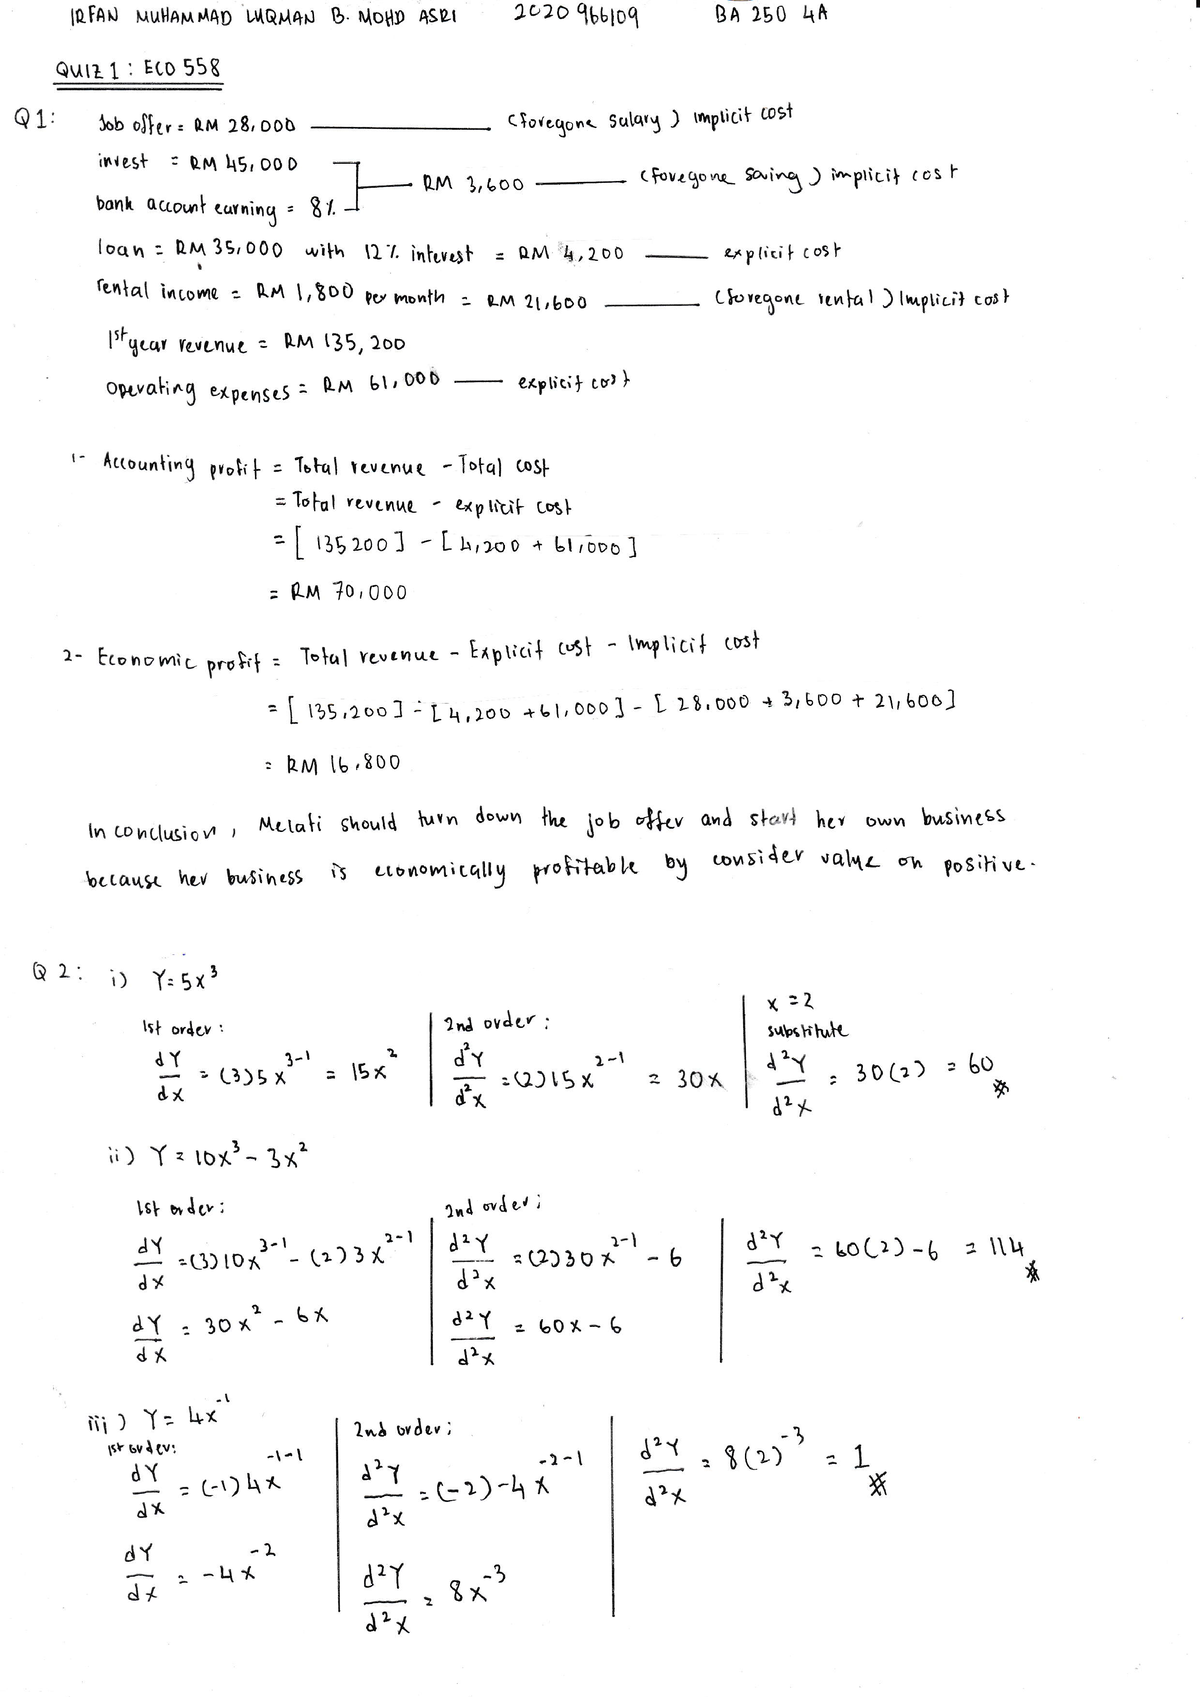 IRFAN MUHAMMAD LUQMAN B. MOHD ASRI 2020966109 BA 250 4A
QUIZ 1 : ECO 558
Q1: Job offer = RM 28,000 (foregone salary) implicit cost
invest = RM 45,000
RM 3,600 (foregone saving) implicit cost
bank account earning = 8%
loan = RM 35,000 with 12% interest = RM 4,200 explicit cost
rental income = RM 1,800 per month = RM 21,600 (foregone rental) Implicit cost
1st year revenue = RM 135,200
Operating expenses = RM 61,000 explicit cost
1- Accounting profit = Total revenue - Total cost
= Total revenue - explicit cost
= [135200] - [4,200 + 61,000]
= RM 70,000
2- Economic profit = Total revenue - Explicit cost - Implicit cost
= [135,200] - [4,200 + 61,000] - [28,000 + 3,600 + 21,600]
= RM 16,800
In conclusion, Melati should turn down the job offer and start her own business
because her business is economically profitable by consider value on positive.
Q2: i) Y = 5x³
1st order: 2nd order: x = 2
substitute
dY/dx = (3)5x³⁻¹ = 15x² d²Y/d²x = (2)15x²⁻¹ = 30x d²Y/d²x = 30(2) = 60
ii) Y = 10x³ - 3x²
1st order: 2nd order;
dY/dx = (3)10x³⁻¹ - (2)3x²⁻¹ d²Y/d²x = (2)30x²⁻¹ - 6 d²Y/d²x = 60(2) - 6 = 114
dY/dx = 30x² - 6x d²Y/d²x = 60x - 6
iii) Y = 4x⁻¹
1st order: 2nd order;
dY/dx = (-1)4x⁻¹⁻¹ d²Y/d²x = (-2)-4x⁻²⁻¹ d²Y/d²x = 8(2)⁻³ = 1
dY/dx = -4x⁻² d²Y/d²x = 8x⁻³